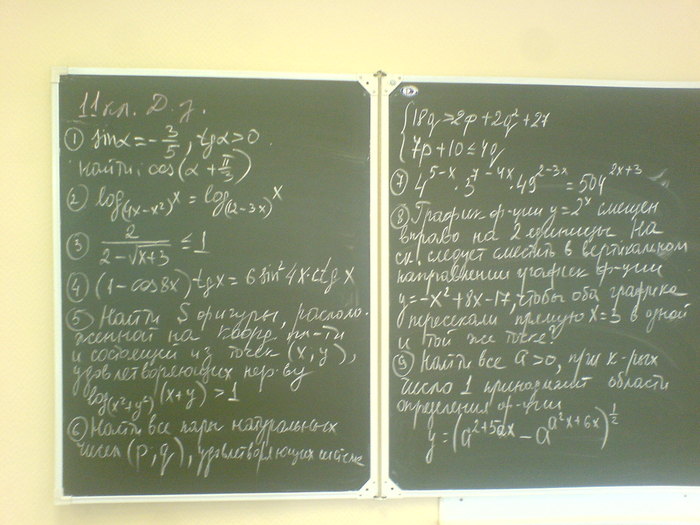 11 кл. Д.з.
① sinα = -3/5, tgα > 0.
Найти: cos(α + π/3)
② log_(4x-x²) x = log_(2-3x) x
③ 2/(2-√(x+3)) ≤ 1
④ (1-cos8x)·tgx = 6sin²4x·ctgx
⑤ Найти S фигуры, располо-
женной на коорд. пл-ти
и состоящей из точек (x, y),
удовлетворяющих нер-ву
log_(x²+y²) (x+y) > 1
⑥ Найти все пары натуральных
чисел (p, q), удовлетворяющих системе
{ 18q > 2p + 2q² + 27
7p + 10 ≤ 4q
⑦ 4^(5-x) · 3^(7-4x) · 49^(2-3x) = 504^(2x+3)
⑧ График ф-ции y = 2^x смещен
вправо на 2 единицы. На
ск. следует сместить в вертикальном
направлении график ф-ции
y = -x² + 8x - 17, чтобы оба графика
пересекали прямую x = 3 в одной
и той же точке?
⑨ Найти все a > 0, при к-рых
число 1 принадлежит области
определения ф-ции
y = (a^(2+5ax) - a^(a²x+6x))^(1/2)